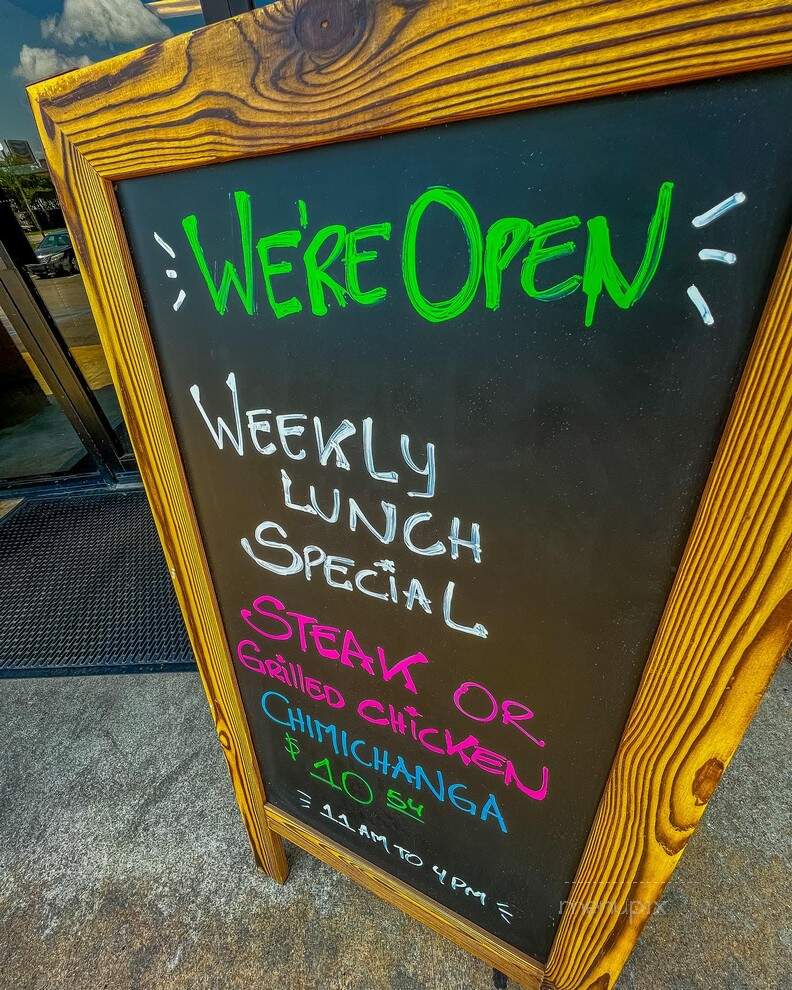 WE'RE OPEN
WEEKLY
LUNCH
SPECiAL
STEAK OR
GRillED CHiCKEN
CHIMICHANGA
$10 54
11 AM TO 4PM
menupix